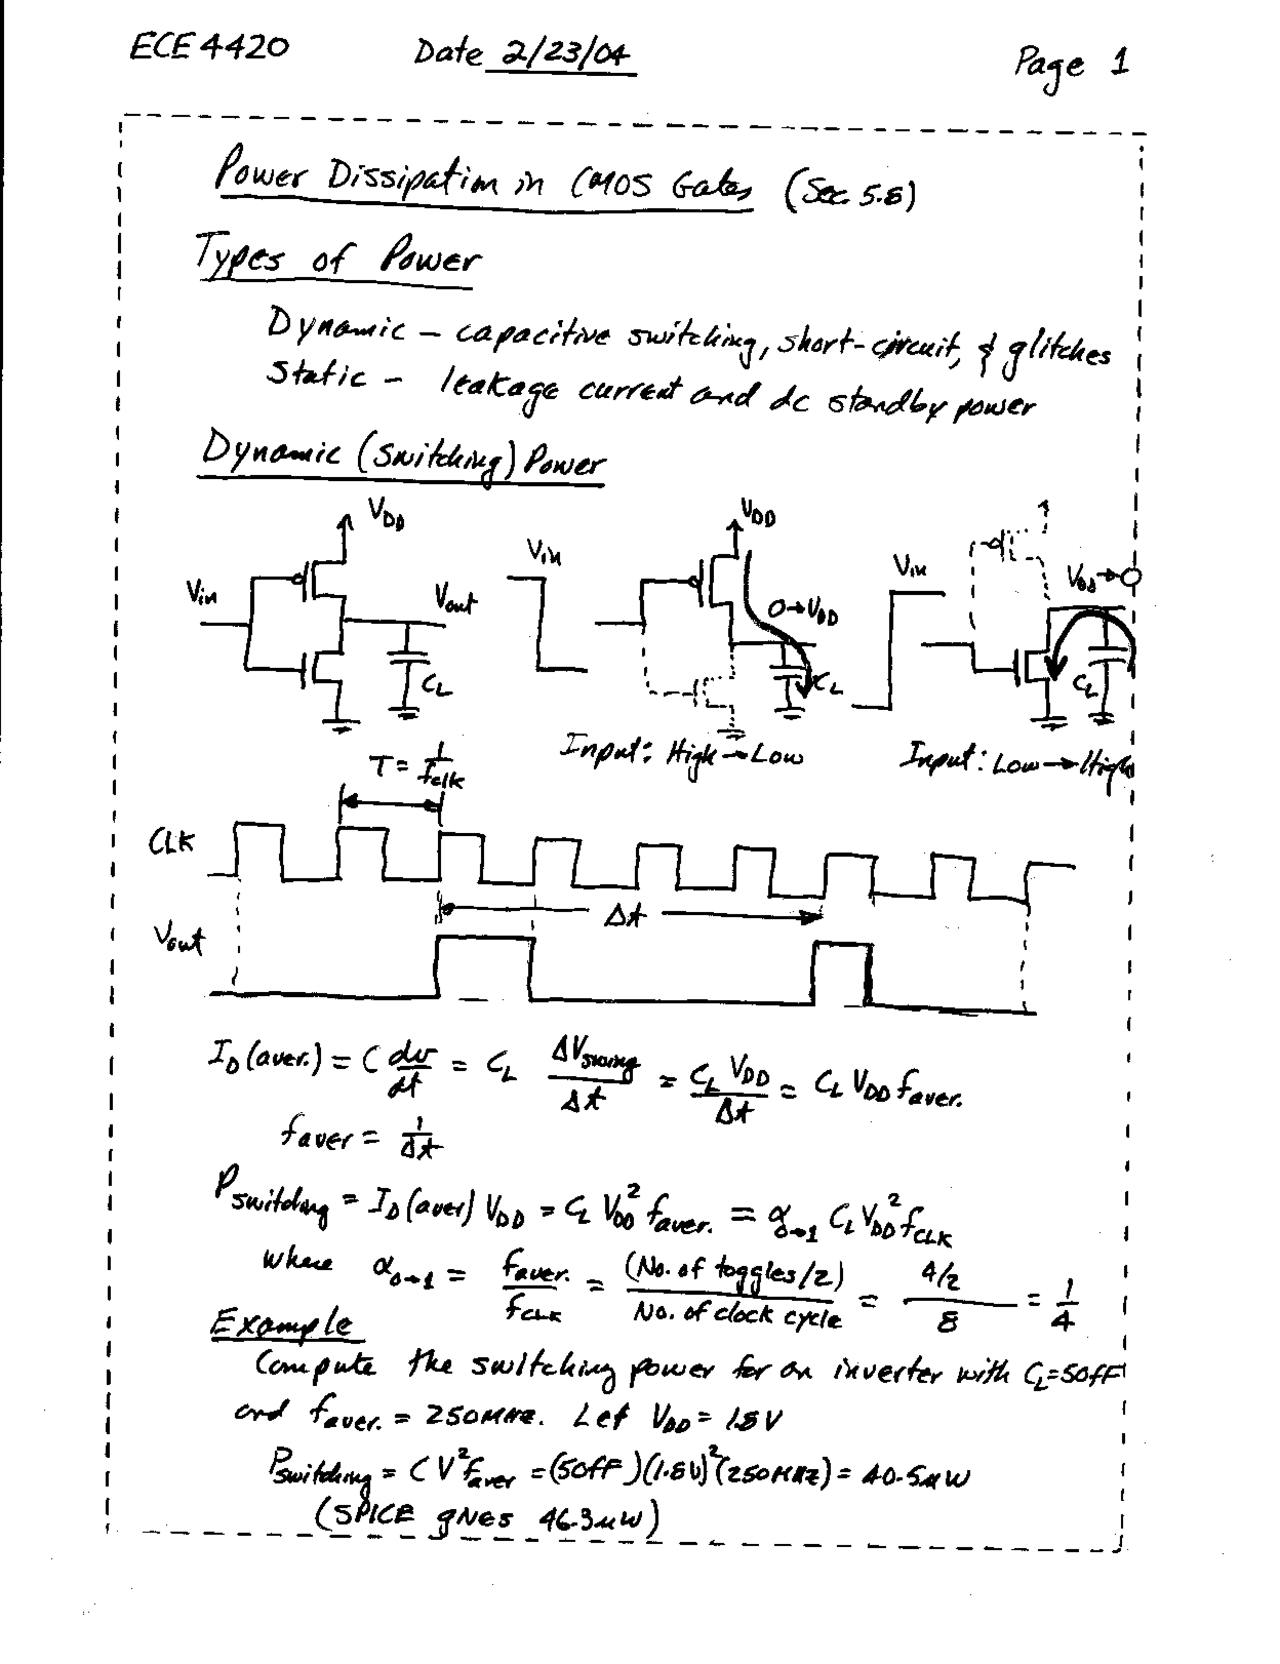 ECE 4420 Date 2/23/04 Page 1
Power Dissipation in CMOS Gates (Sec. 5.8)
Types of Power
Dynamic – capacitive switching, short-circuit, & glitches
Static – leakage current and dc standby power
Dynamic (Switching) Power
VDD
Vin
Vout
CL
Vin
VDD
0→VDD
CL
Input: High → Low
Vin
VDD→0
CL
Input: Low → High
T = 1/fclk
CLK
Δt
Vout
ID(aver.) = C dv/dt = CL ΔVswing/Δt = CL VDD/Δt = CL VDD faver.
faver = 1/Δt
Pswitching = ID(aver) VDD = CL VDD² faver. = α0→1 CL VDD² fCLK
where α0→1 = faver./fCLK = (No. of toggles/2)/No. of clock cycle = 4/2/8 = 1/4
Example
Compute the switching power for an inverter with CL=50fF
and faver. = 250MHz. Let VDD = 1.8V
Pswitching = CV²faver = (50fF)(1.8V)²(250MHz) = 40.5μW
(SPICE gives 46.3μW)